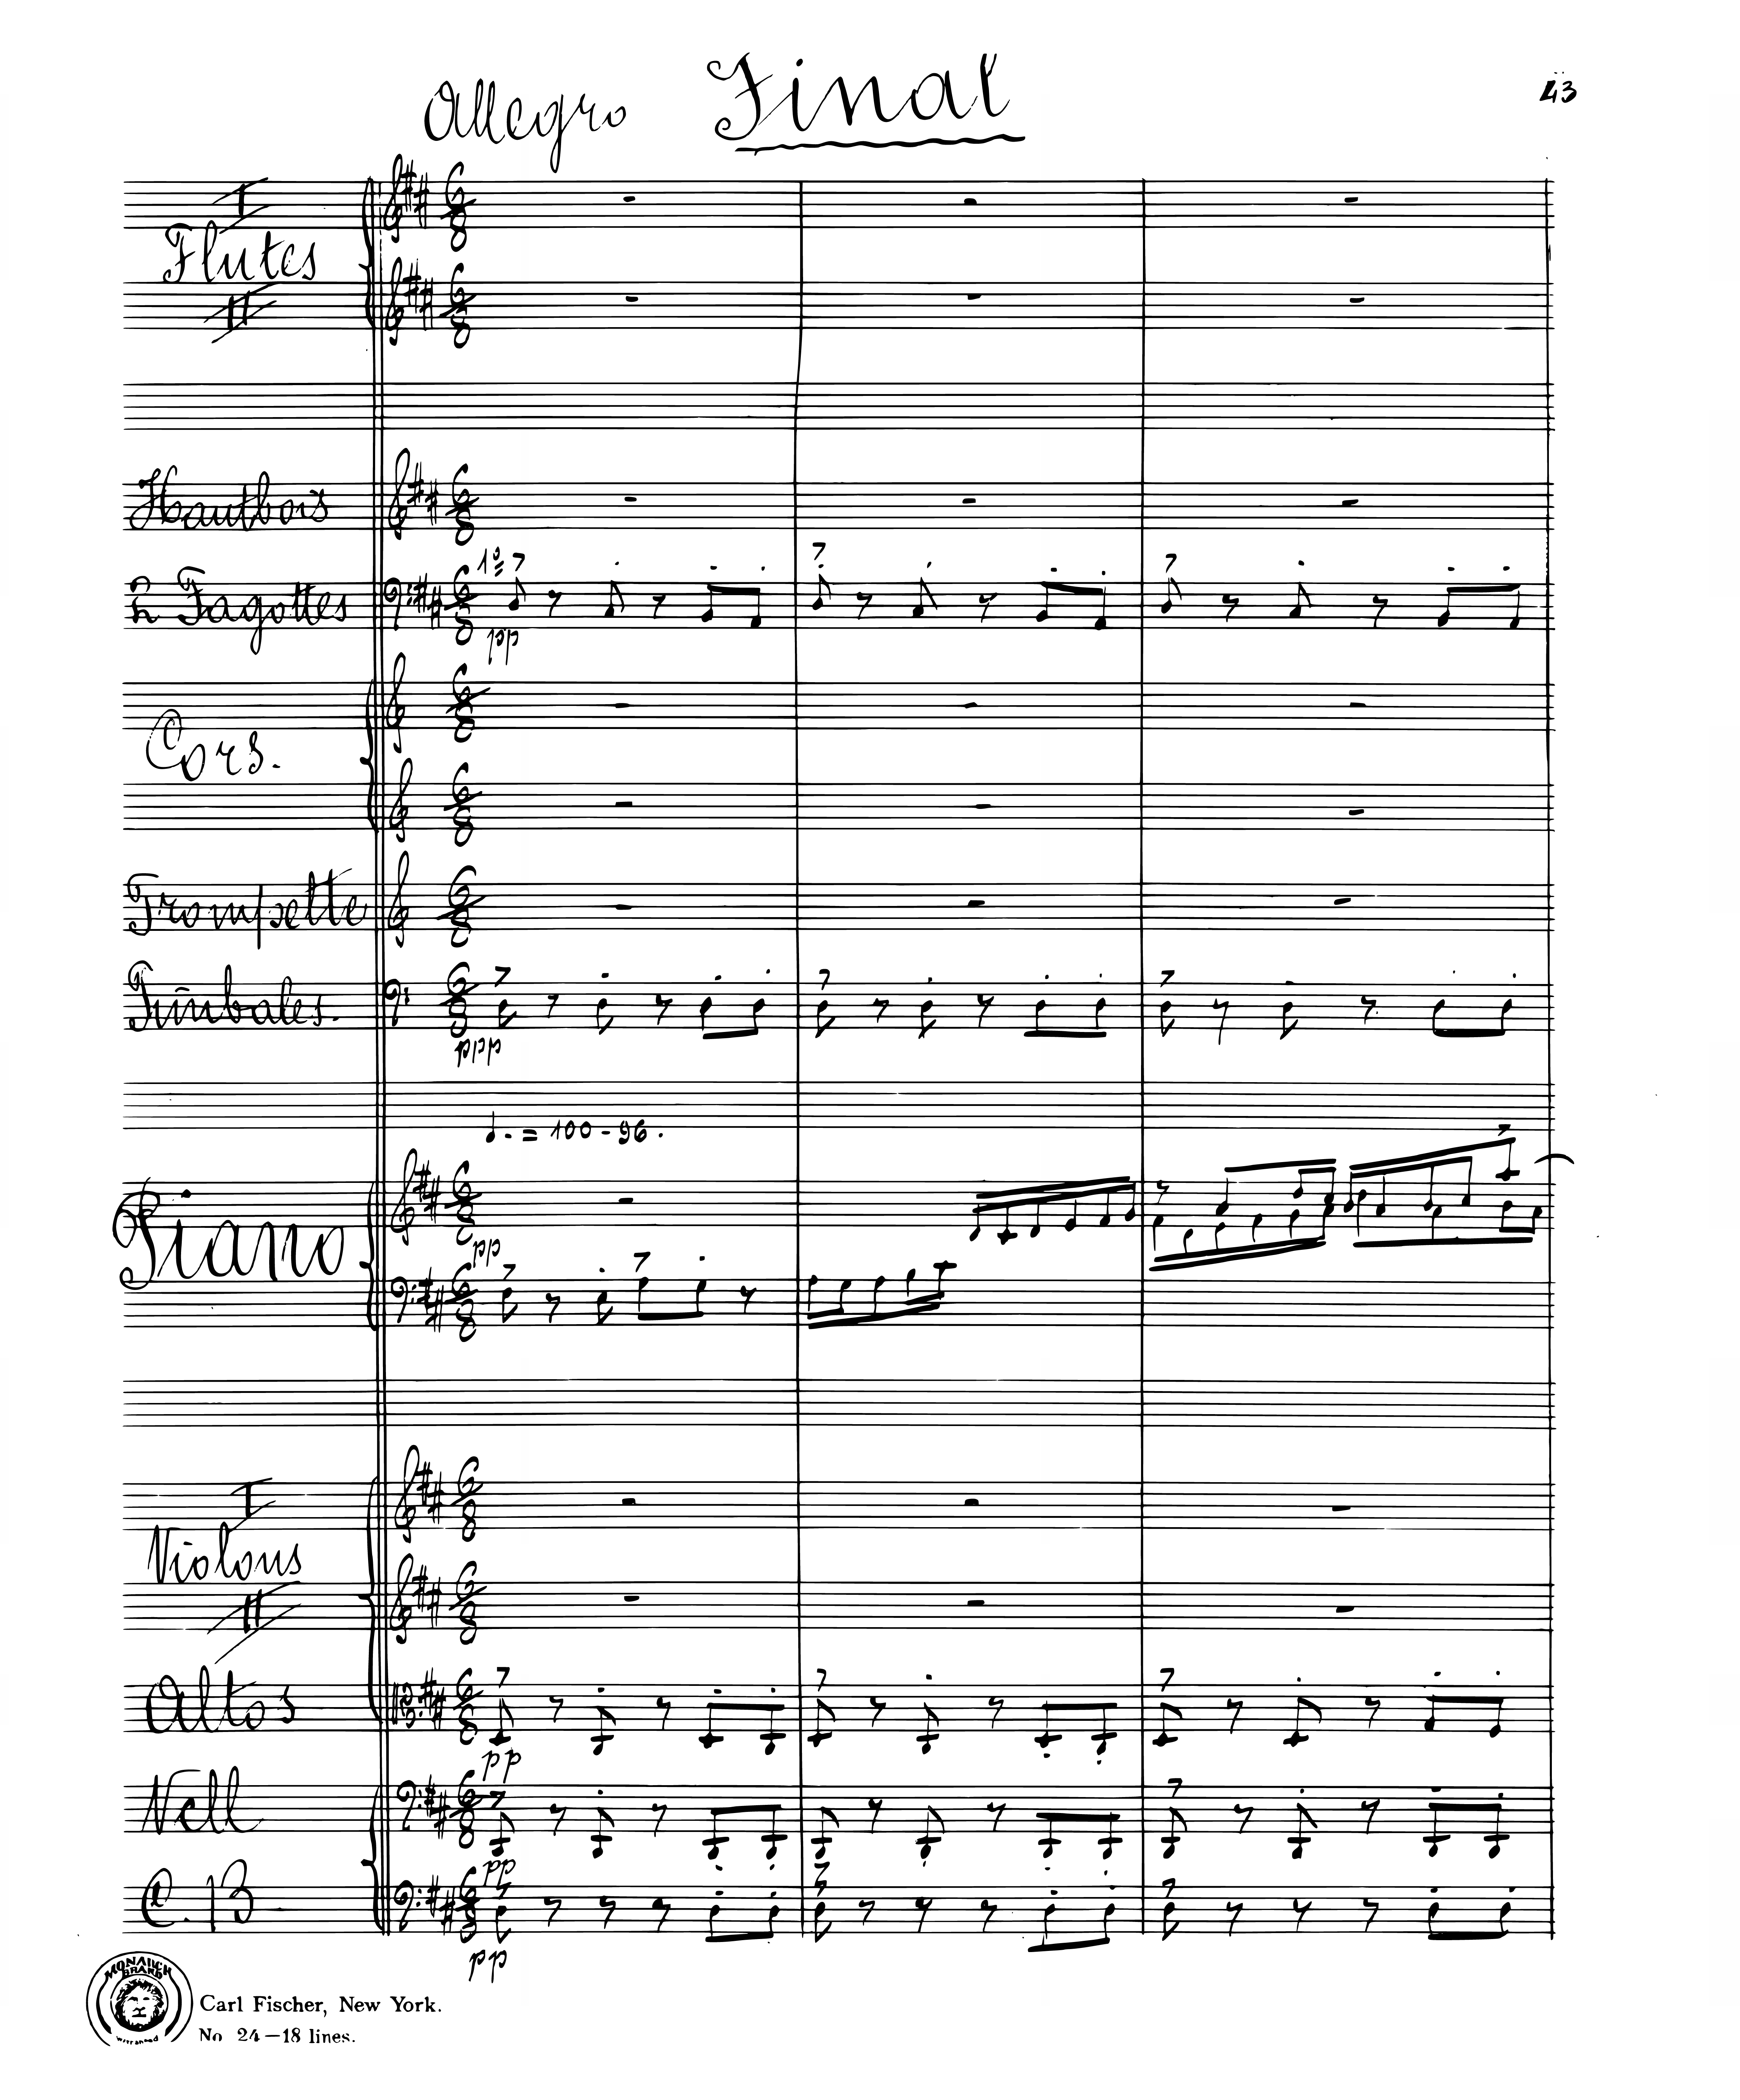 Allegro Final
43
I
Flutes
II
Hautbois
1º
2 Fagottes
pp
Cors.
Trompette
Timbales.
ppp
♩. = 100-96.
Piano
pp
I
Violons
II
Altos
pp
Vcll
pp
C. B
pp
MONARCH
BRAND
Carl Fischer, New York.
No 24-18 lines.